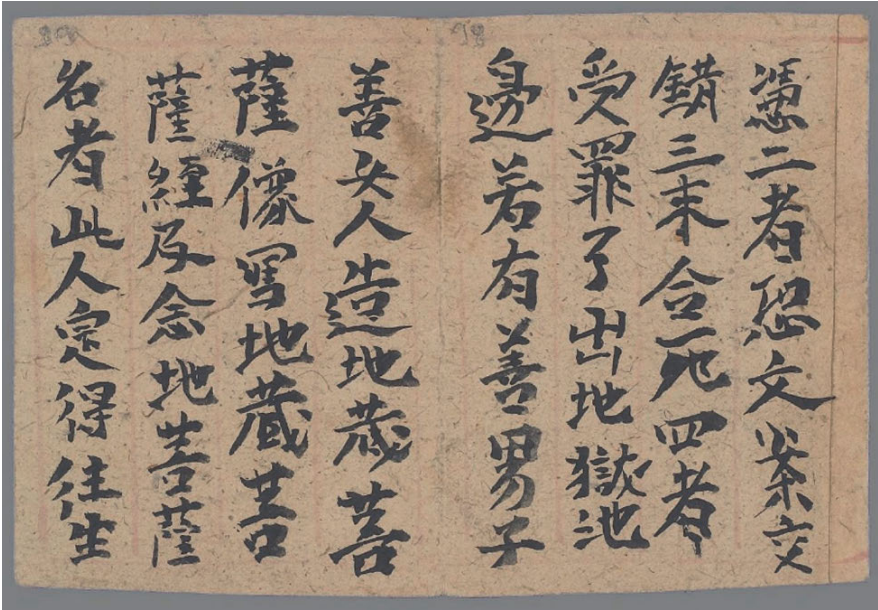 憑二者恐文案交
錯三未合死四者
受罪了出地獄池
邊若有善男子
善女人造地蔵菩
薩像寫地蔵菩
薩經及念地菩薩
名者此人定得往生